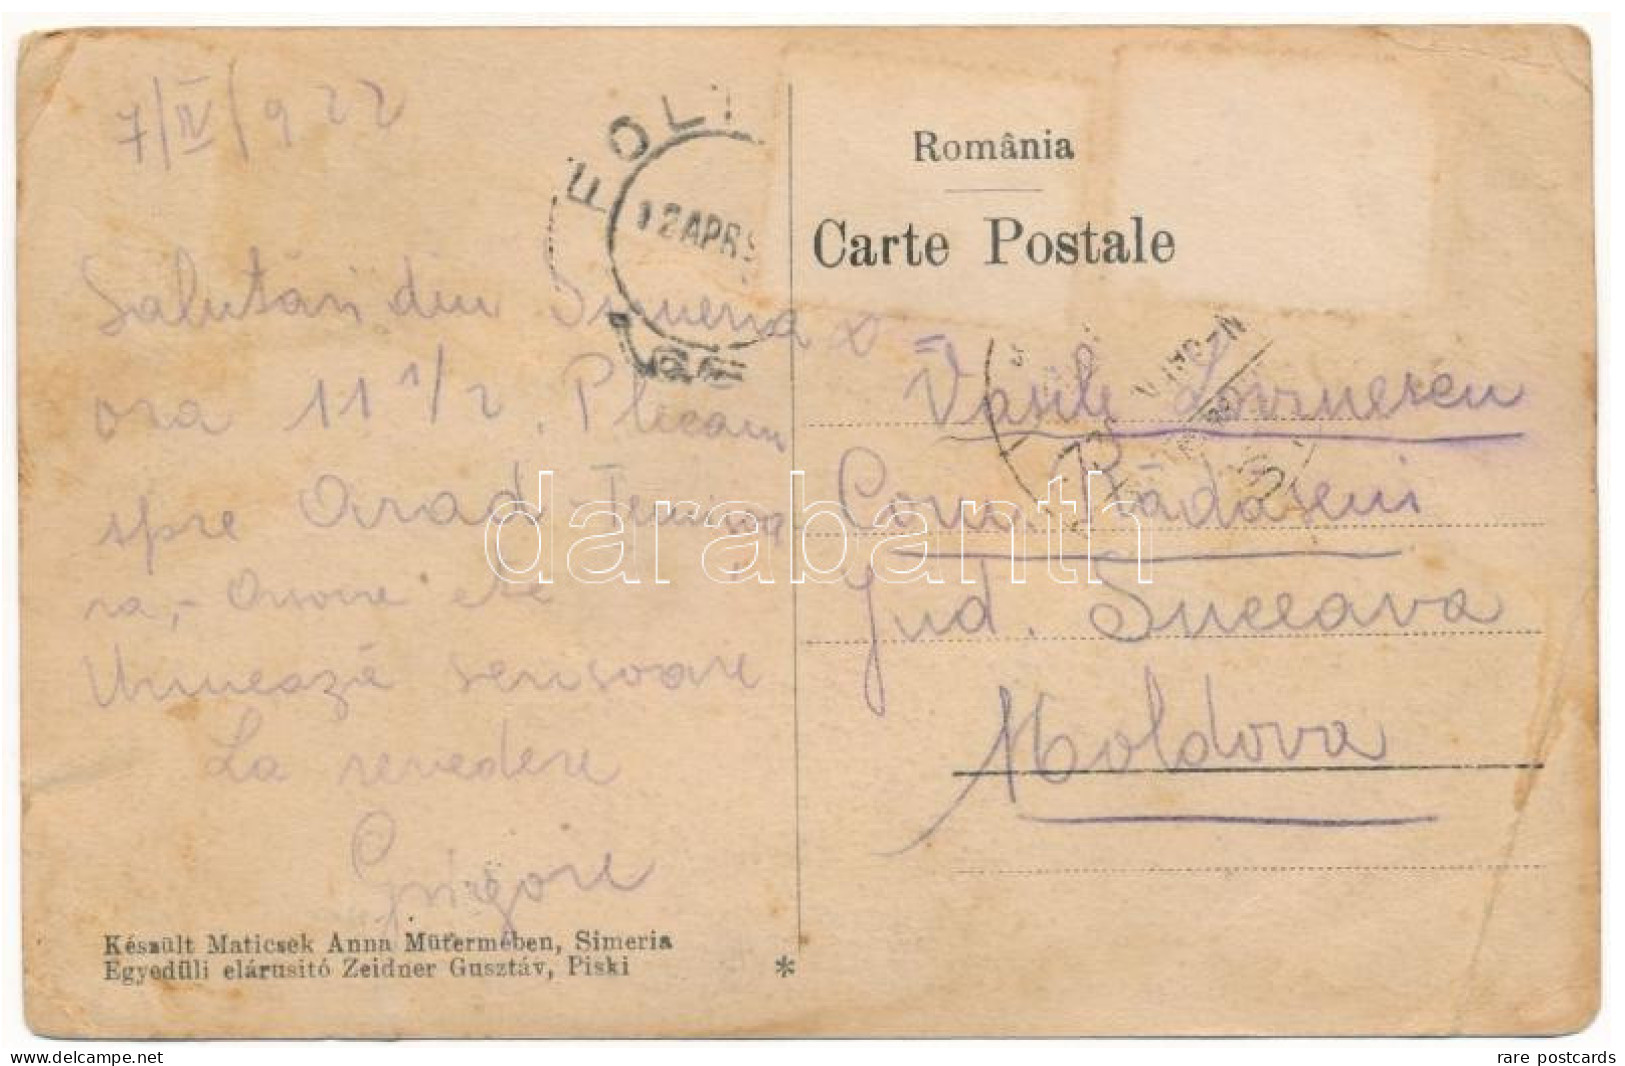 7/IV/922
Salutări din Simeria
ora 11 1/2. Plecam
spre Arad - Temișoa
ra,-
Urmează scrisoare
La revedere
Grigore
Készült Maticsek Anna Műtermében, Simeria
Egyedüli elárusító Zeidner Gusztáv, Piski
*
FOL
12 APR 9
România
Carte Postale
Vasile Lovinescu
Com. Rădăseni
Jud. Suceava
Moldova
darabanth
www.delcampe.net
rare postcards